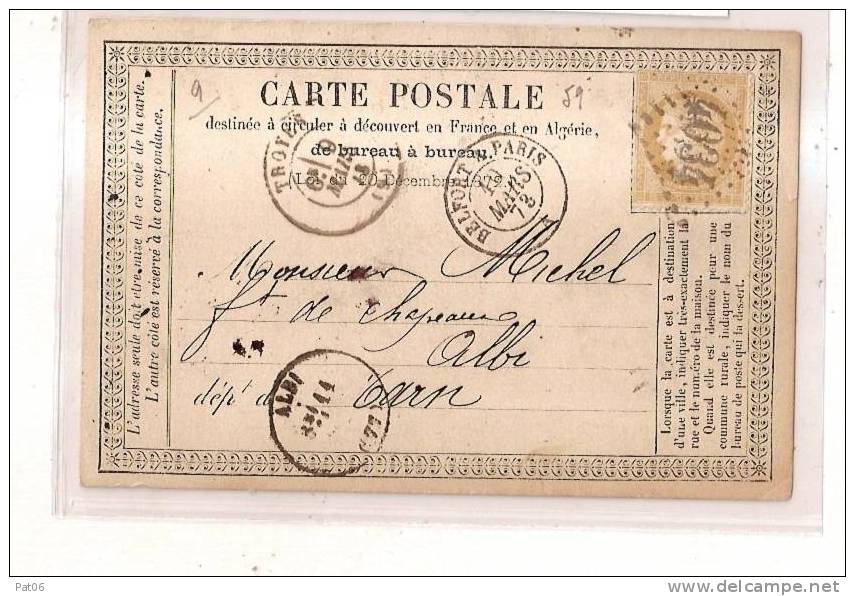 9
59
CARTE POSTALE
destinée à circuler à découvert en France et en Algérie,
de bureau à bureau.
(Loi du 20 Décembre 1872.)
TROYES
BELFORT A PARIS
MARS
73
4034
Monsieur Michel
ft de chapeaux
Albi
dépt de Tarn
ALBI
11
L'adresse seule doit etre mise de ce coté de la carte.
L'autre côté est réservé à la correspondance.
Lorsque la carte est à destination
d'une ville, indiquer très-exactement la
rue et le numéro de la maison.
Quand elle est destinée pour une
commune rurale, indiquer le nom du
bureau de poste qui la dessert.
Pat06
delcampe.net